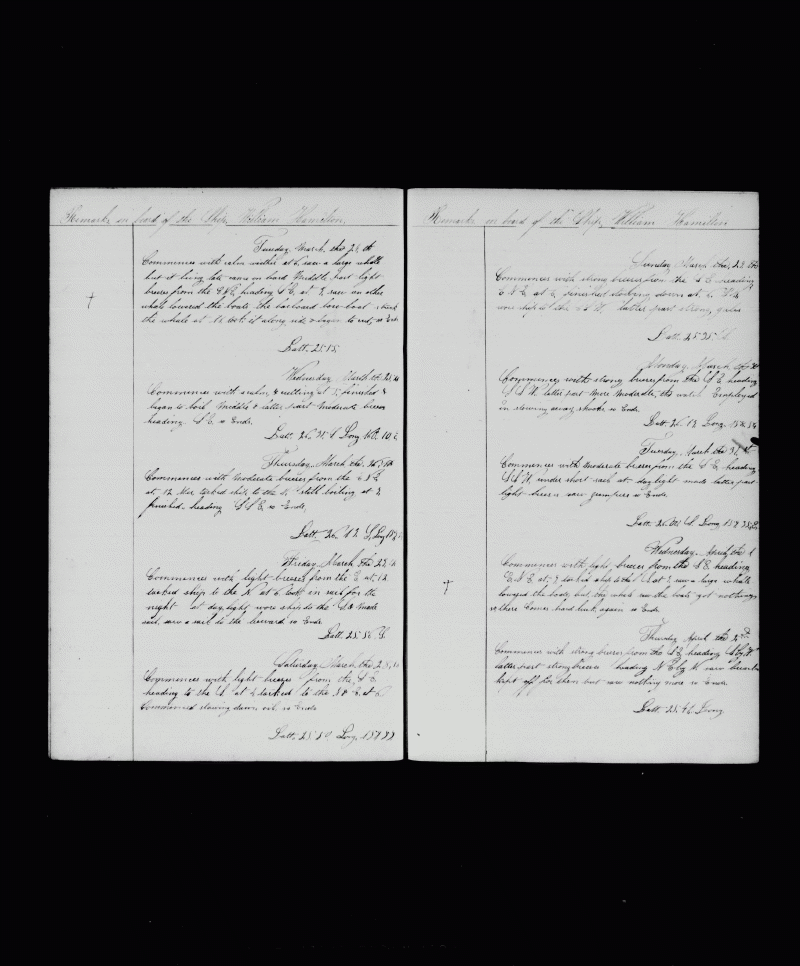 Remarks on board of the Ship William Hamilton
Tuesday March the 24th
Commences with calm weather at 6 saw a large whale
but it being late came on board Middle part light
breeze from the heading S E at saw an other
whale lowered the boats the larboard bow boat struck
the whale at 12 took it along side & began to cut so Ends
Latt. 25.15
Wednesday March the 25th
Commences with a calm & cutting at 5 finished &
began to boil Middle & latter part moderate breeze
heading S E so Ends
Latt. 26. Long
Thursday March the 26th
Commences with Moderate breezes from the
at 12 tacked ship to the still boiling at
finished heading S S E so Ends
Latt. 26.12 S Long
Friday March the
Commences with light breeses from the E at 12
tacked ship to the N at 6 took in sail for the
night at day light wore ship to the S & made
sail, saw a sail to the leeward so Ends
Latt. 25. S
Saturday March the 28
Commences with light breezes from the S E
heading to the S at tacked to the E at 6
Commenced stowing down oil so Ends
Latt. 25 Long
Remarks on board of the Ship William Hamilton
Sunday March the 29 th
Commences with strong breezes from the S E heading
E N E at 6 finished stowing down at
wore ship to the S W latter part strong gales
Latt. 25.35 S
Monday March the 30
Commences with strong breezes from the S E heading
S S W latter part More Moderate, the watch Employed
in stowing away shooks so Ends
Latt. 26.12 Long.
Tuesday March the 31 st
Commences with Moderate breezes from the S E heading
S S W under short sail at day light made latter part
light breeze saw jumpers so Ends
Latt. 26 S Long
Wednesday April the 1
Commences with light breezes from the S E heading
E N E at tacked ship to the S at saw a large whale
lowered the boats but the whale saw the boats got nothing
so there Comes hard luck again so Ends
Thursday April the 2nd
Commences with strong breezes from the S E heading S by W
latter part strong breeze heading N E by N saw
kept off for them but saw nothing more so Ends
Latt. 25. Long